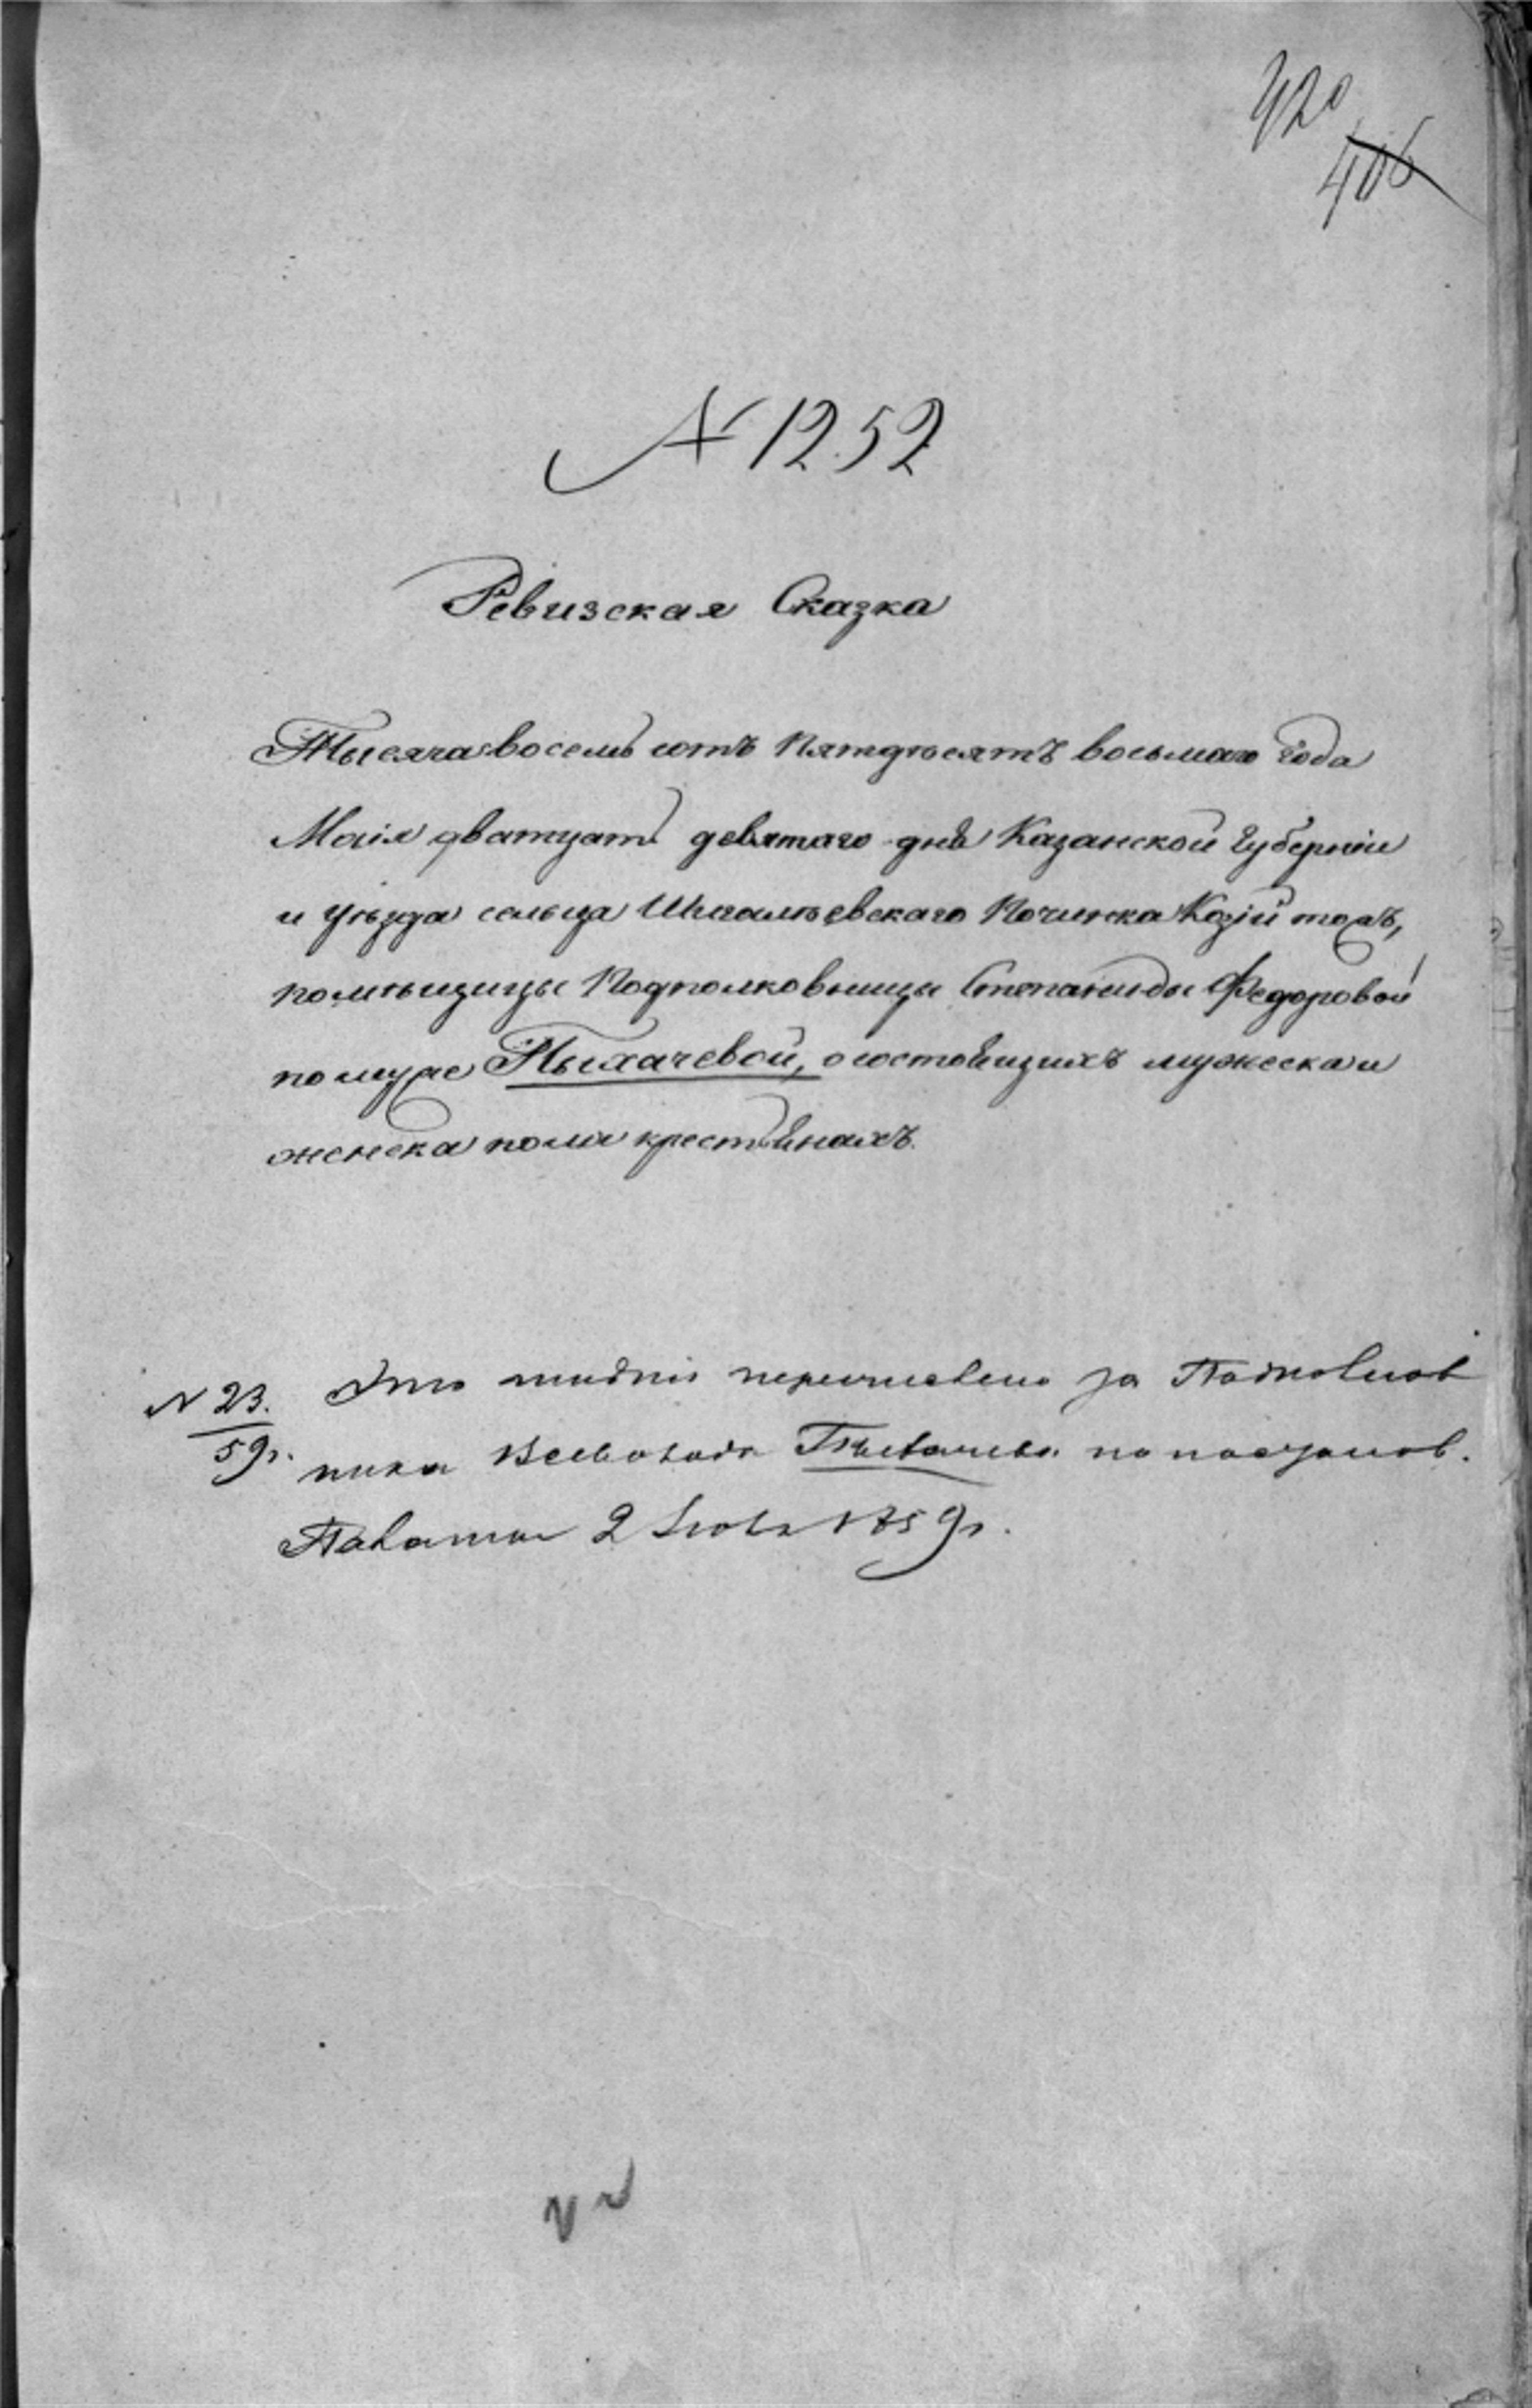 420
406
№ 1252
Ревизская Сказка
Тысяча восемь сотъ пятдѣсятъ восьмаго года
Маія дватцать девятаго дня Казанской Губерніи
и уѣзда сельца Шигалѣевскаго Починка Козій тожъ,
помѣщицы Подполковницы Степаниды Федоровой
по мужѣ Тыхачевой, о состоящихъ мужеска и
женска пола крестьянахъ.
N 23.
59г.
Это имѣніе перечислено за Полковнов
ника Всеволода Тыхачева по постанов.
Палаты 2 1859г.